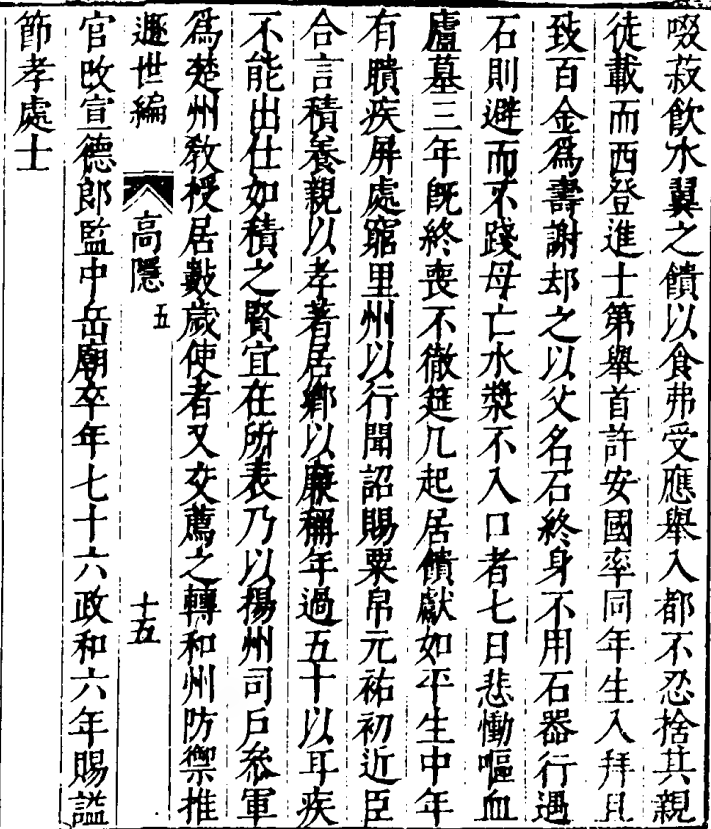 啜菽飲水翼之饋以食弗受應舉入都不忍捨其親
徒載而西登進士第舉首許安國率同年生入拜且
致百金爲壽謝却之以父名石終身不用石器行遇
石則避而不踐母亡水漿不入口者七日悲慟嘔血
廬墓三年旣終喪不徹筵几起居饋獻如平生中年
有聵疾屏處窮里州以行聞詔賜粟帛元祐初近臣
合言積養親以孝著居鄉以廉稱年過五十以耳疾
不能出仕如積之賢宜在所表乃以揚州司戶叅軍
爲楚州敎授居數歲使者又交薦之轉和州防禦推
遯世編 高隱 五 十五
官改宣德郎監中岳廟卒年七十六政和六年賜諡
節孝處士